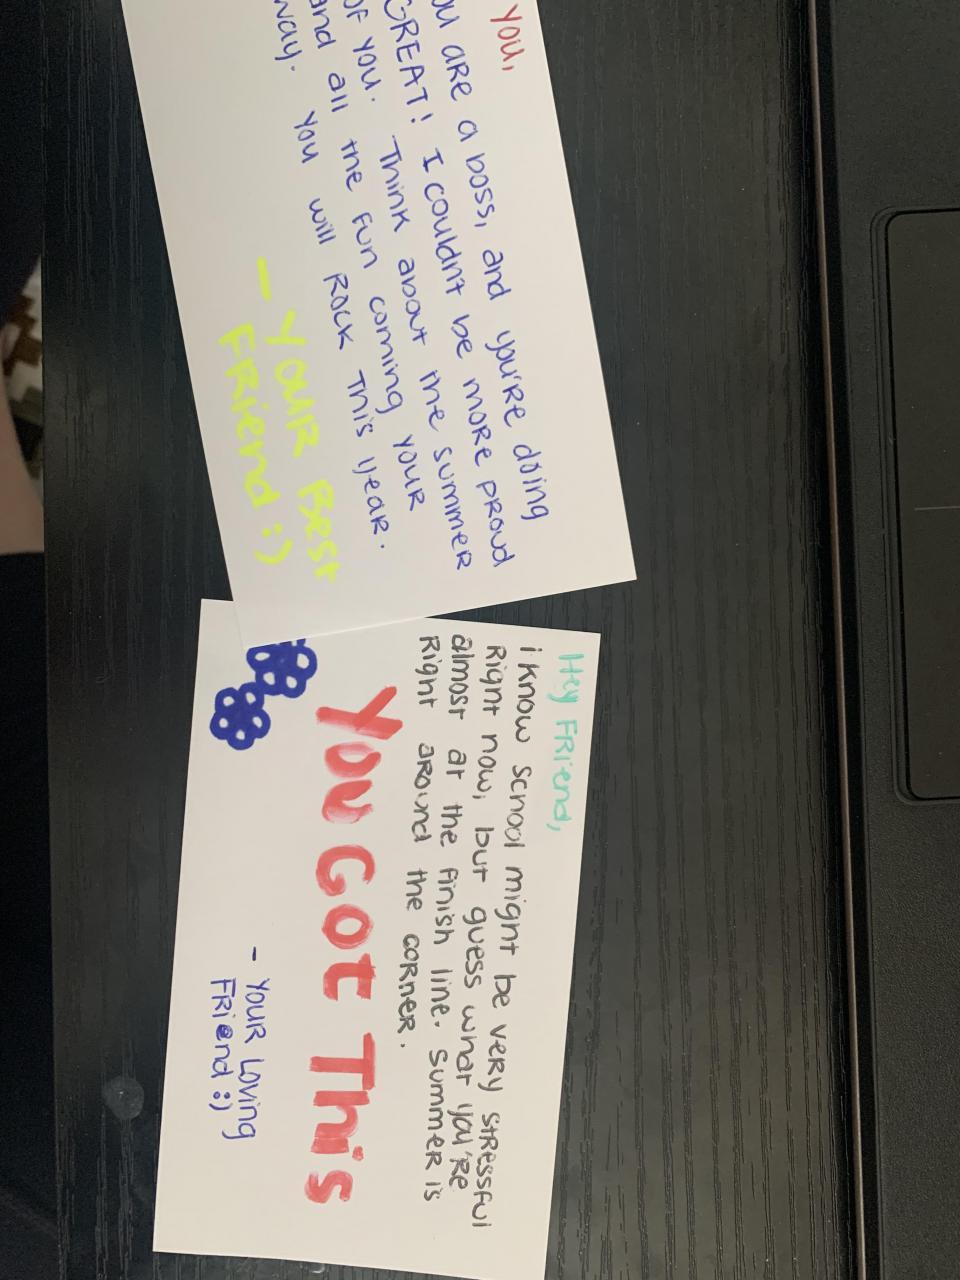 You,
ou are a boss, and you're doing
GREAT! I couldn't be more proud
of you. Think about the summer
and all the fun coming your
way. You will Rock This year.
- Your Best
Friend :)
Hey Friend,
i know school might be very stressful
Right now, but guess what you're
almost at the finish line. Summer is
Right around the corner.
You Got This
- Your Loving
Friend :)